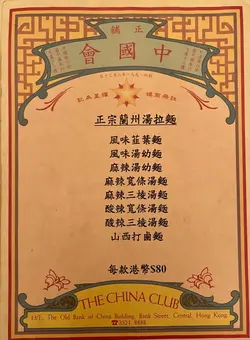 正
舖
中國會
正宗蘭州湯拉麵
風味韮葉麵
風味湯幼麵
麻辣湯幼麵
麻辣寬條湯麵
麻辣三棱湯麵
酸辣寬條湯麵
酸辣三棱湯麵
山西打鹵麵
每款港幣$80
THE CHINA CLUB
13/F., The Old Bank of China Building, Bank Street, Central, Hong Kong
☎2521 8888